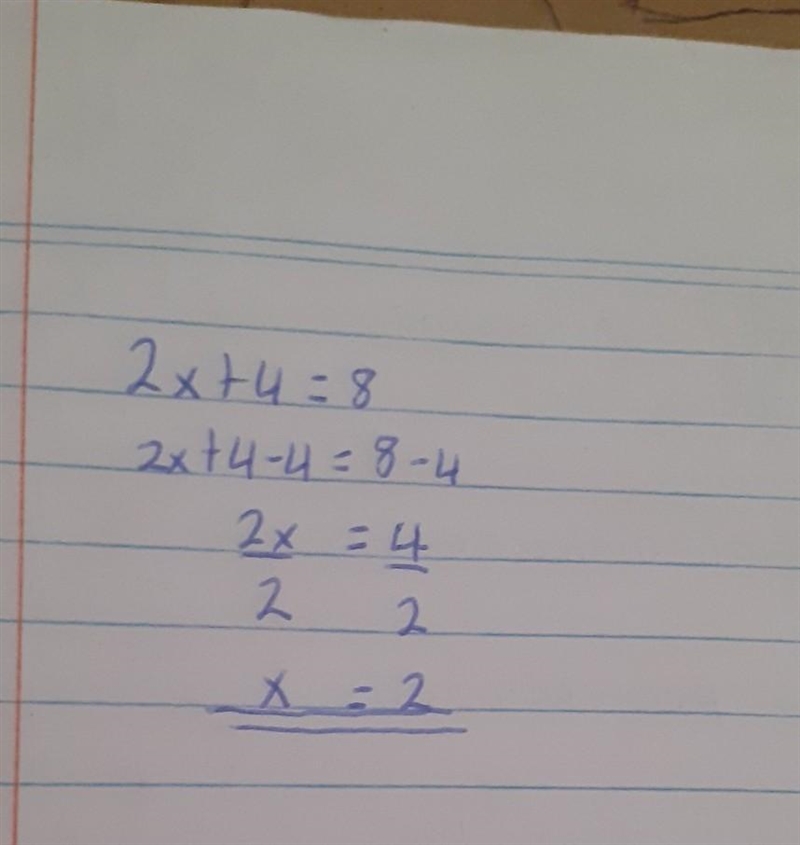 2x+4=8
2x+4-4=8-4
2x = 4
2 2
x = 2